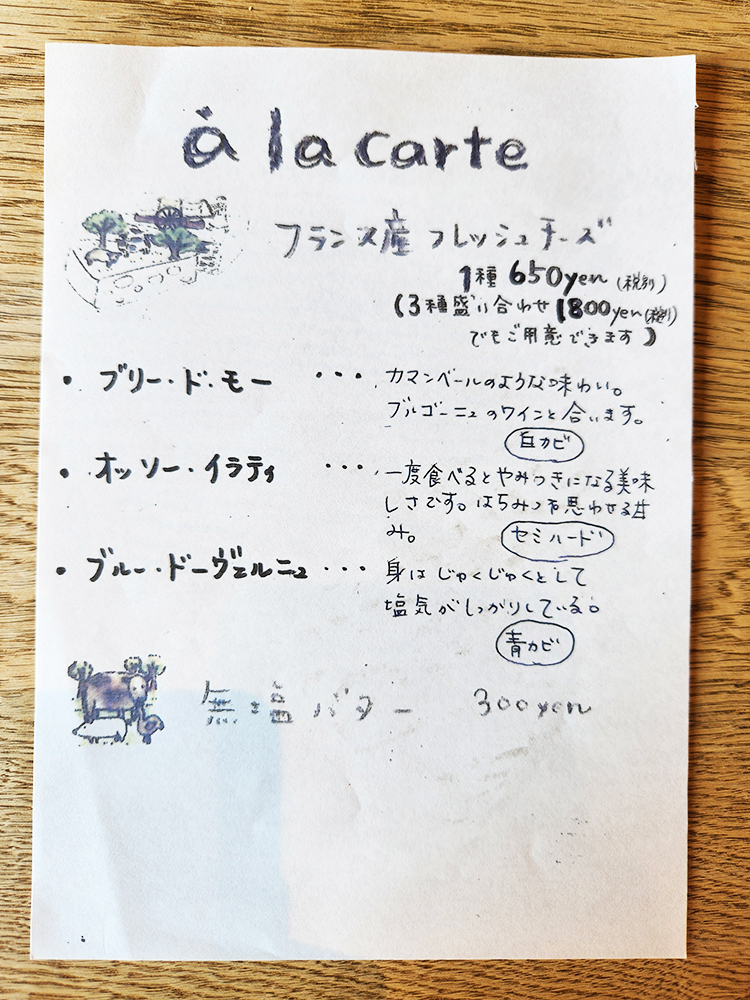 à la carte
フランス産 フレッシュチーズ
1種 650yen (税別)
(3種盛り合わせ 1800yen(税別)
でもご用意できます)
• ブリー・ド・モー ・・・ カマンベールのような味わい。
ブルゴーニュのワインと合います。
白カビ
• オッソー・イラティ ・・・ 一度食べるとやみつきになる美味
しさです。はちみつを思わせる甘
み。 セミハード
• ブルー・ドーヴェルニュ ・・・ 身はじゅくじゅくとして
塩気がしっかりしている。
青カビ
無塩バター 300yen